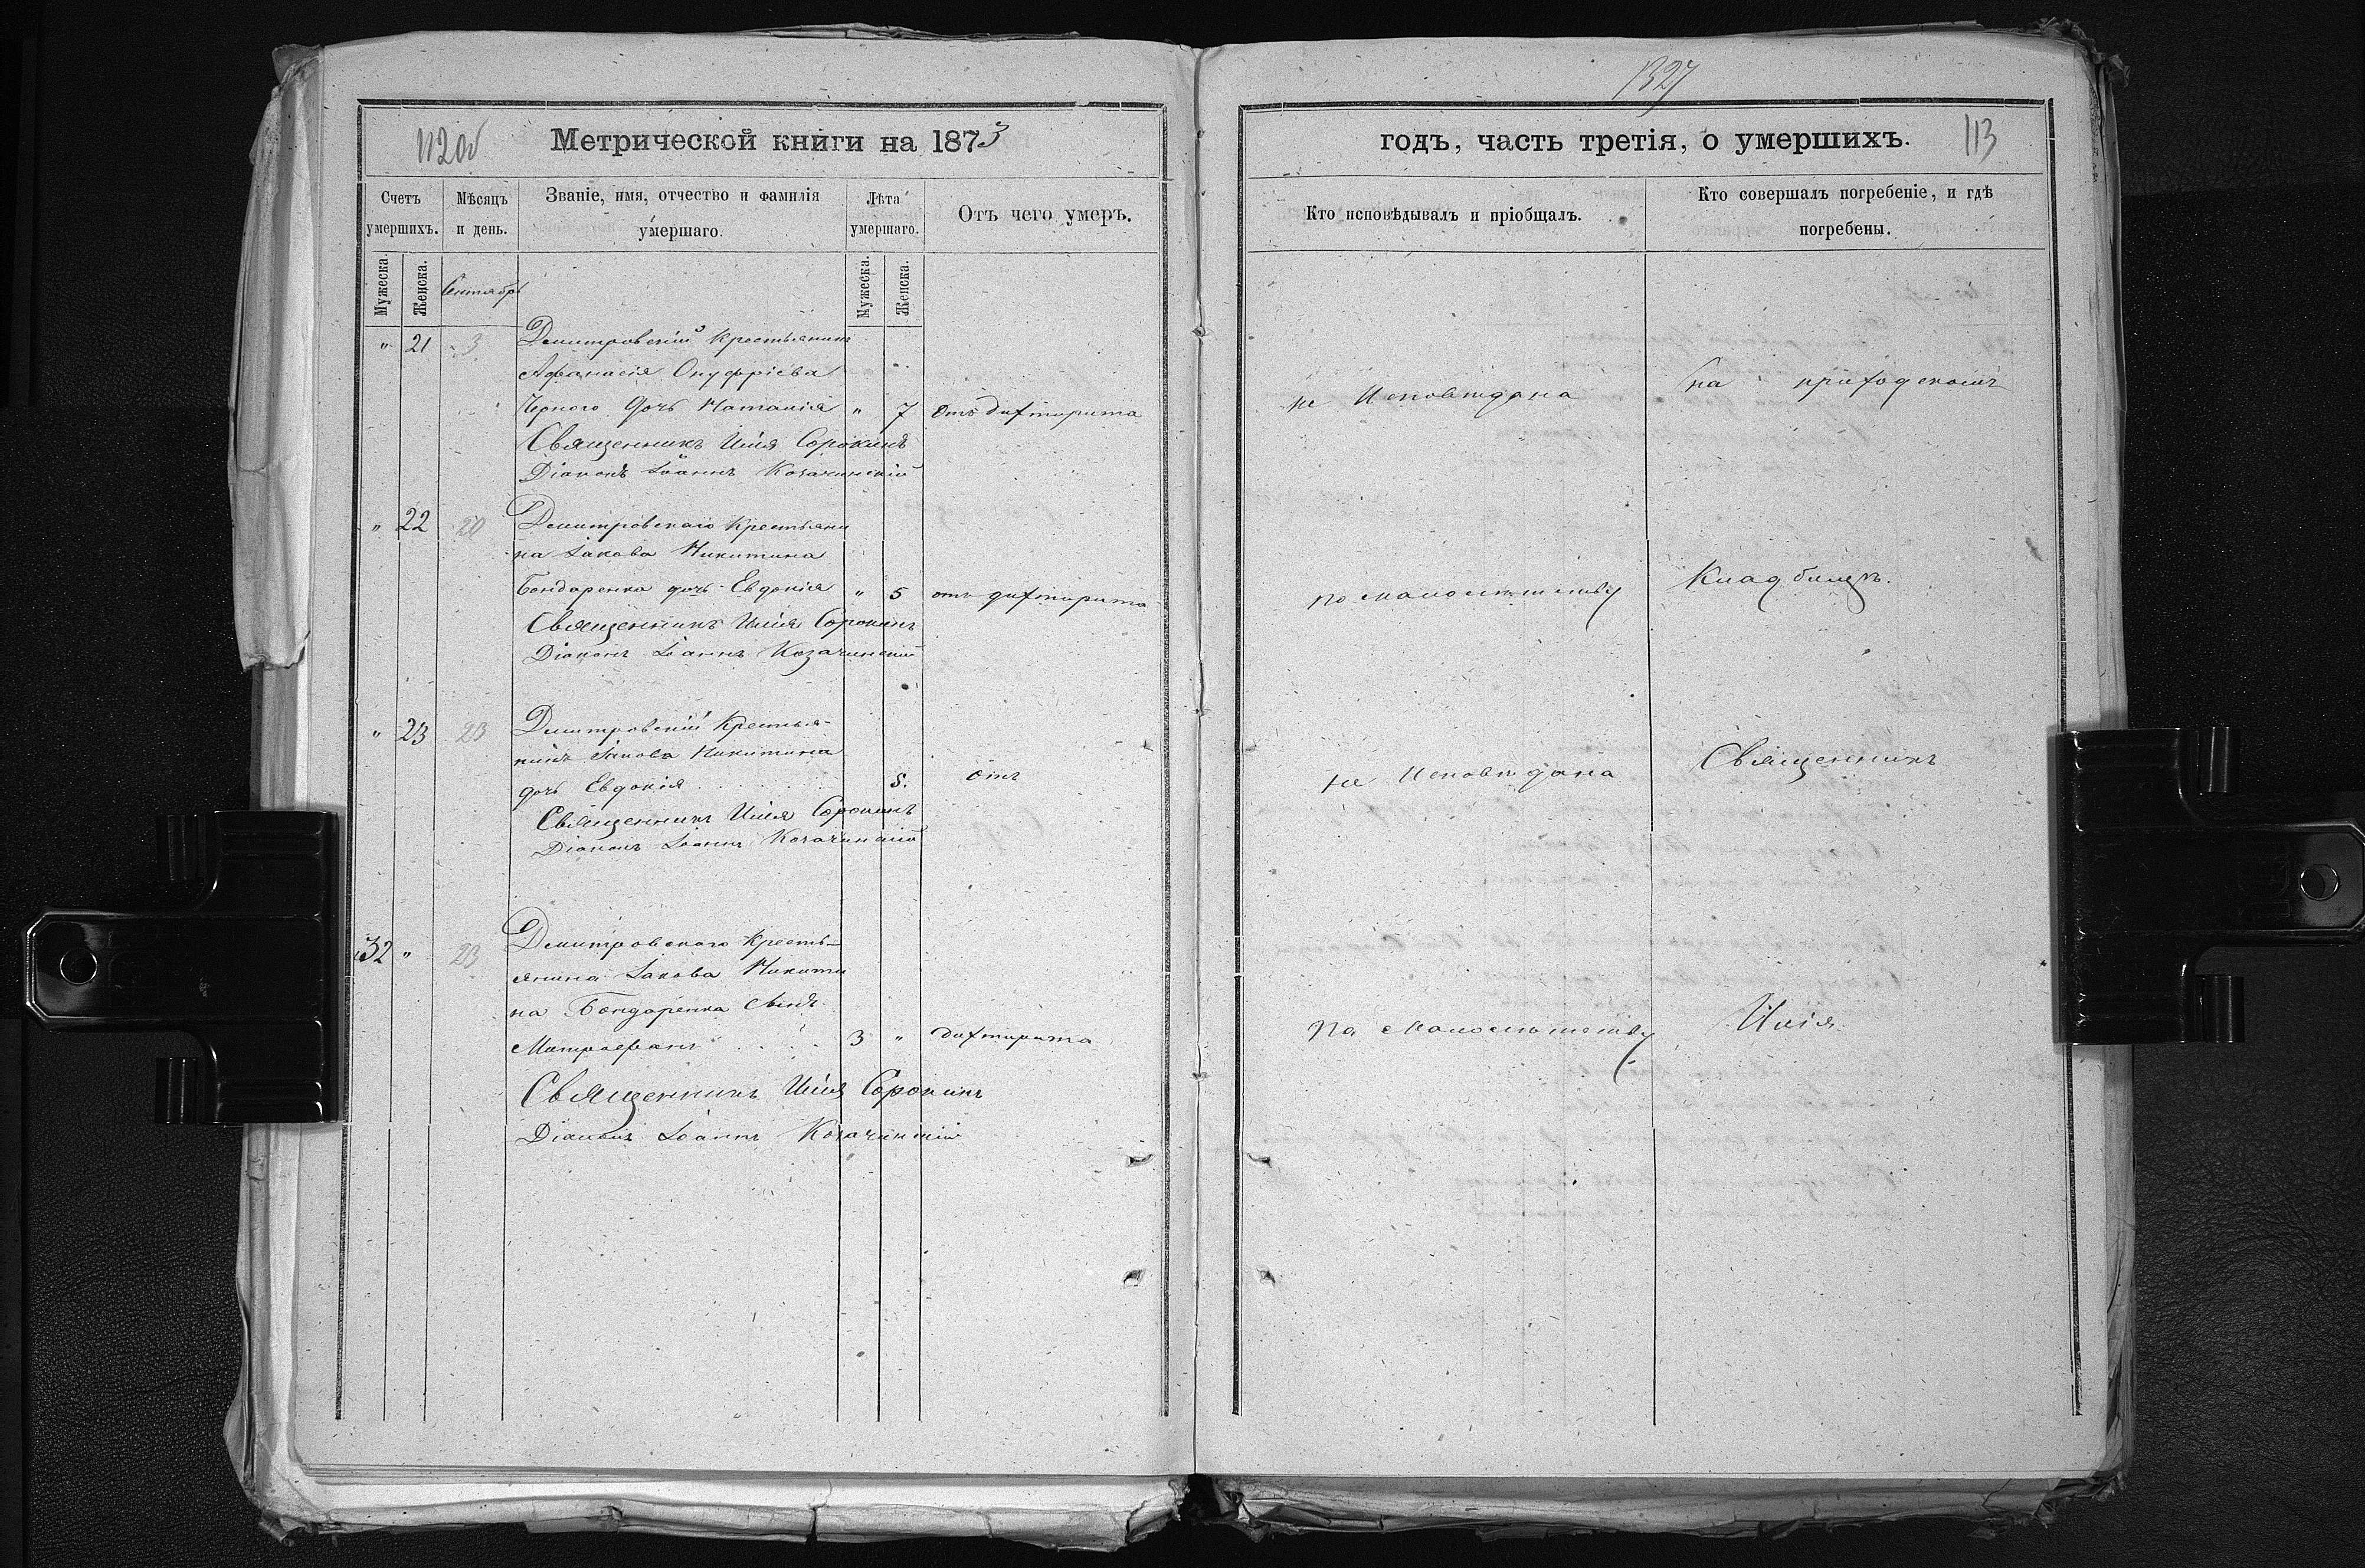 112об
Метрической книги на 1873
Счетъ умершихъ.
Мѣсяцъ и день.
Званіе, имя, отчество и фамилія умершаго.
Лѣта умершаго.
Отъ чего умеръ.
Мужеска.
Женска.
Сентябрь
Мужеска.
Женска.
" 21 3 Дмитровскій Крестьянинъ
Афанасія Онуфріева
Черного дочь Наталія " 7 Отъ дифтирита
Священникъ Илія Сорокинъ
Діаконъ Іоаннъ Козачинскій
" 22 20 Дмитровскаго Крестьяни
на Іакова Никитина
Бондаренка дочь Евдокія " 5 отъ дифтирита
Священникъ Илія Сорокинъ
Діаконъ Іоаннъ Козачинскій
" 23 23 Дмитровскій Крестья-
нинъ Іакова Никитина
дочь Евдокія 5. отъ
Священникъ Илія Сорокинъ
Діаконъ Іоаннъ Козачинскій
32 " 23 Дмитровского Кресть-
янина Іакова Никити
на Бондаренка сынъ
Митрофанъ 3 " дифтирита
Священникъ Илія Сорокинъ
Діаконъ Іоаннъ Козачинскій
1327
годъ, часть третія, о умершихъ.
113
Кто исповѣдывалъ и пріобщалъ.
Кто совершалъ погребеніе, и гдѣ
погребены.
не Исповѣдана
На приходскомъ
по малолѣтству
Кладбищѣ.
не Исповѣдана
Священникъ
по малолѣтству
Илія